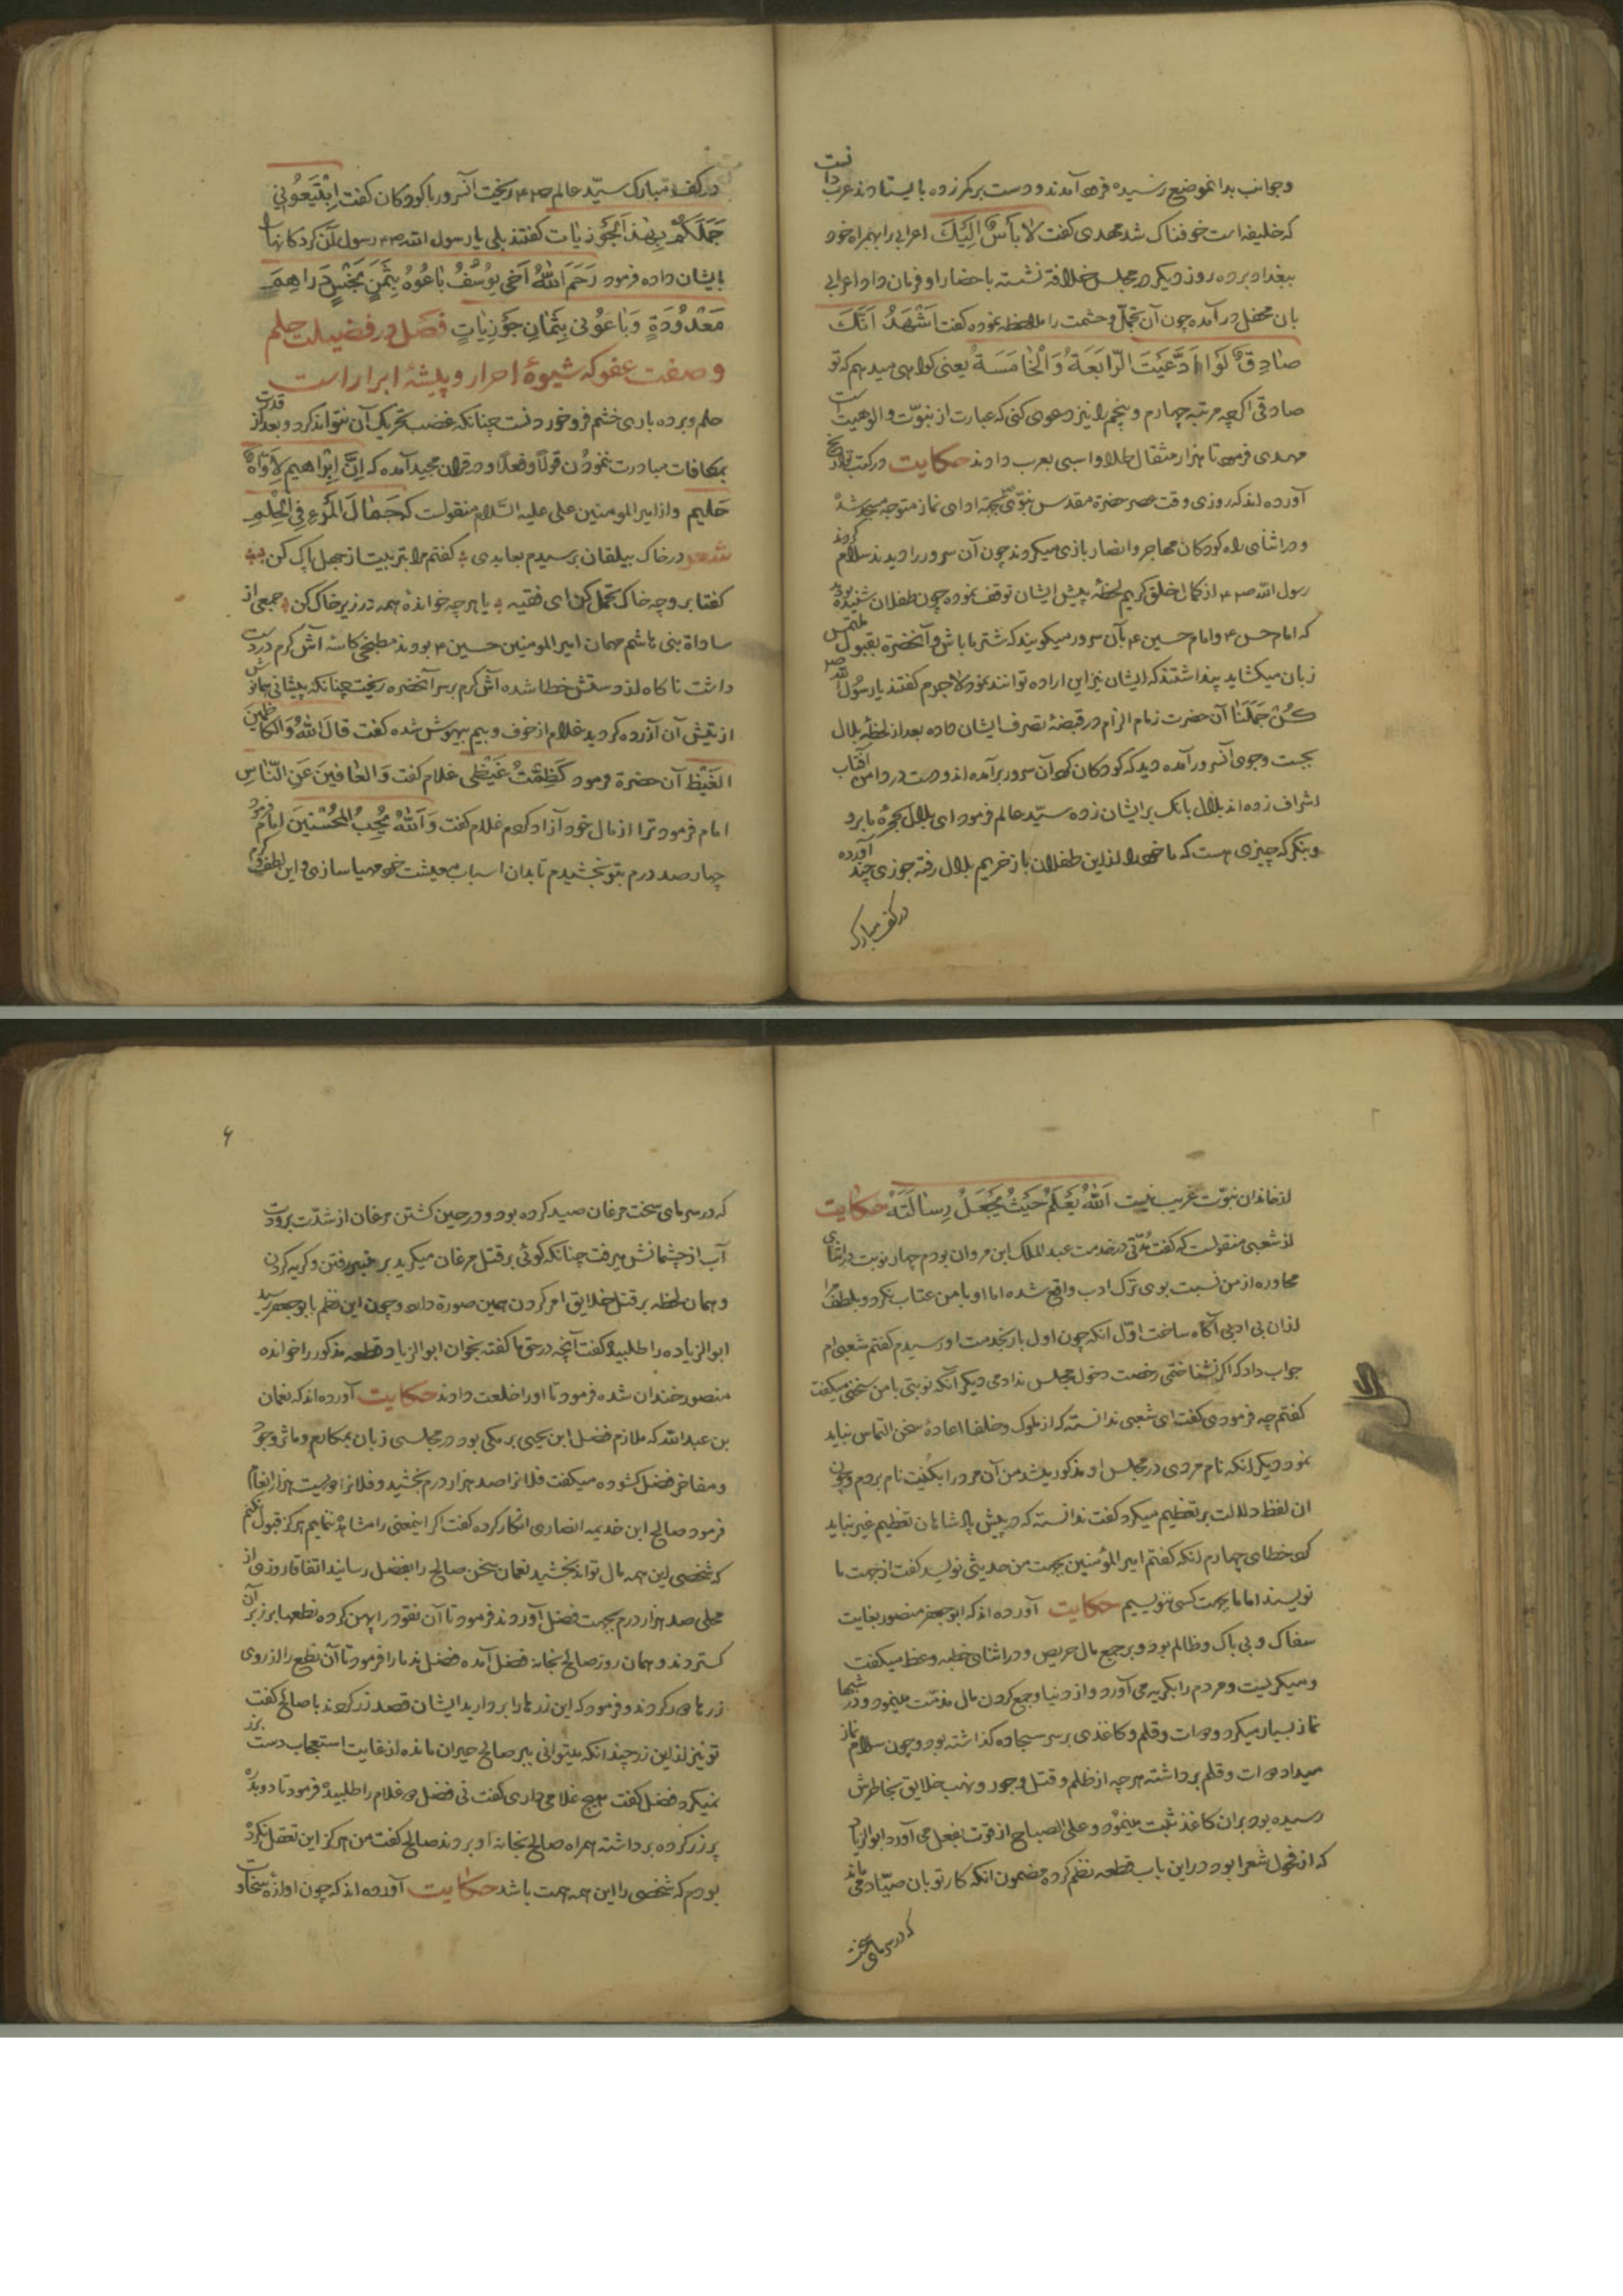 وجوانب بدانموضع رسیده فرود آمدند و دست بر کمر زده بایستادند عرب دانست
که خلیفه است خوفناک شد مهدی گفت لا بأس الیک اعرابی را بهمراه خود
ببغداد برده روز دیگر در مجلس خلافة نشسته باحضار او فرمان داد اعرابی
بان محفل در آمده چون آن تجمل وحشمت را ملاحظه نموده گفت اشهد انک
صادق ولو ادعیت الرابعة والخامسة یعنی کواهی میدهم که تو
صادقی اکرچه مرتبه چهارم و پنجم را نیز دعوی کنی که عبارت از نبوت والوهیت است
مهدی فرمود تا هزار مثقال طلا واسبی بعرب دادند حکایت در کتب تواریخ
آورده اند که روزی وقت عصر حضرة مقدس نبوی بجهة ادای نماز متوجه مسجد شد
ودر اثنای راه کودکان مهاجر وانصار بازی میکردند چون آن سرور را دیدند سلام کردند
رسول الله از کمال خلق کریم لحظهٔ پیش ایشان توقف نموده چون طفلان شنیده بودند
که امام حسن وامام حسین بآن سرور میکویند که شتر ما باش وآنحضرة بقبول ملتمس
زبان میکشاید پنداشتند که ایشان نیز این اراده توانند نمود لاجرم گفتند یا رسول الله
کن جملنا آن حضرت زمام الزام در قبضهٔ تصرف ایشان داده بعد از لحظهٔ بلال
بجست وجوی آنسرور آمده دید که کودکان کرد آن سرور برآمده اند ودست در دامن آفتاب
اشراف زده اند بلال بانک بر ایشان زده سید عالم فرمود ای بلال بحجرهٔ ما برو
وبنکر که چیزی هست که ما خود را از این طفلان باز خریم بلال رفته جوزی چند آورده
در کف مبارک
در کف مبارک سید عالم ریخت آنسرور با کودکان گفت ابتیعونی
جملکم بهذه الجوزیات گفتند بلی یا رسول الله رسول آن کردکانها
بایشان داده فرمود رحم الله اخی یوسف باعوه بثمن بخس دراهم
معدودة وباعونی بثمان جوزیات فصل در فضیلت حلم
وصفت عفو که شیوهٔ احرار و پیشهٔ ابرار است
حلم و برده باری خشم فرو خوردنست چنانکه غضب تحریک آن نتواند کرد وبعد از قدرت
بمکافات مبادرت ننمودن قولا وفعلا ودر قرآن مجید آمده که ان ابراهیم لاواه
حلیم واز امیر المومنین علی علیه السلام منقولست که جمال المرء فی الحلم
شعر در خاک بیلقان برسیدم بعابدی گفتم مرا بتربیت از جهل پاک کن
گفتا برو چه خاک تحمل کن ای فقیه یا هر چه خوانده همه در زیر خاک کن جمعی از
ساداة بنی هاشم مهمان امیر المومنین حسین بودند مطبخی کاسه آش کرم در دست
داشت ناکاه از دستش خطا شده آش کرم بر سر آنحضره ریخت چنانکه پیشانی همایونش
از تپش آن آزرده کردید غلام از خوف وبیم بیهوش شده گفت قال الله والکاظمین
الغیظ آن حضرة فرمود کظمت غیظی غلام گفت والعافین عن الناس
امام فرمود ترا از مال خود آزاد کردم غلام گفت والله یحب المحسنین امام فرمود
چهار صد درم بتو بخشیدم تا بدان اسباب معیشت خود مهیا سازی واین لطف وکرم
از خاندان نبوت غریب نیست الله یعلم حیث یجعل رسالته حکایت
از شعبی منقولست که گفت مدتی در خدمت عبد الملک ابن مروان بودم چهار نوبت در اثنای
محاوره از من نسبت بوی ترک ادب واقع شده اما او با من عتاب نکرد وبلطف مرا
از ان بی ادبی آکاه ساخت اول انکه چون اول بار بخدمت او رسیدم گفتم شعبی ام
جواب داد که اکر نشناختمی رخصت دخول مجلس ندادمی دیکر آنکه نوبتی با من سخنی میکفت
گفتم چه فرمودی گفت ای شعبی ندانستهٔ که از ملوک وخلفا اعادهٔ سخن التماس نباید
نمود دیکر انکه نام مردی در مجلس او مذکور میشد من آن مرد را بکنیت نام بردم وچون
ان لفظ دلالت بر تعظیم میکرد گفت ندانستهٔ که در پیش پادشاهان تعظیم غیر نباید
کرد خطای چهارم انکه گفتم امیر المؤمنین بجهت من حدیثی نویسد گفت از جهت ما
نویسند اما ما بجهت کسی ننویسیم حکایت آورده اند که ابو جعفر منصور بغایت
سفاک و بی باک وظالم بود وبر جمع مال حریص ودر اثنای خطبه وعظ میکفت
ومیکریست ومردم را بکریه می آورد واز دنیا وجمع کردن مال مذمت مینمود ودر شبها
نماز بسیار میکرد ودوات وقلم وکاغذی بر سر سجاده کذاشته بود وچون سلام نماز
میداد دوات وقلم برداشته هر چه از ظلم وقتل وجور ونهب خلایق بخاطرش
رسیده بود بران کاغذ ثبت مینمود وعلی الصباح از قوت بفعل می آورد ابو الزیاد
که از فحول شعرا بود در این باب قطعه نظم کرده مضمون انکه کار تو بان صیاد می ماند
که در سرمای سخت
۶
که در سرمای سخت مرغان صید کرده بود ودر حین کشتن مرغان از شدت برودت
آب از چشمانش میرفت چنانکه کوئی بر قتل مرغان میکرید بر منبر رفتن وکریه کردن
وهمان لحظه بر قتل خلایق امر کردن همین صورة دارد وچون این نظم بابو جعفر رسید
ابو الزیاده را طلبیده گفت آنچه در حق ما گفتهٔ بخوان ابو الزیاد قطعه مذکور را خوانده
منصور خندان شده فرمود تا او را خلعت دادند حکایت آورده اند که نعمان
بن عبد الله که ملازم فضل ابن یحیی برمکی بود در مجلسی زبان بمکارم وماثر وجود
ومفاخر فضل کشوده میکفت فلانرا صد هزار درم بخشید وفلانرا دویست هزار انعام
فرمود صالح ابن خدیمه انصاری انکار کرده گفت اکر اینمعنی را مشاهده ننمایم هرکز قبول نکنم
که شخصی این همه مال تواند بخشید نعمان سخن صالح را بفضل رسانید اتفاقا روزی از
محلی صد هزار درم بجهت فضل آوردند فرمود تا آن نقود را پهن کرده نطعها بر زبر آن
کستردند وهمان روز صالح بخانه فضل آمده فضل ندما را فرمود تا آن نطع را از روی
زرها دور کردند وفرمود که این زرها را بردارید ایشان قصد زر کردند با صالح گفت
تو نیز از این زر چندانکه میتوانی ببر صالح حیران مانده از غایت استعجاب دست بزر
نمیکرد فضل گفت هیچ غلامی داری گفت نی فضل دو غلام را طلبیده فرمود تا دو بدره
پر زر کرده برداشته همراه صالح بخانه او بردند صالح گفت من هرکز این تعقل نکرده
بودم که شخصی را این همه همت باشد حکایت آورده اند که چون اوازهٔ سخاوت